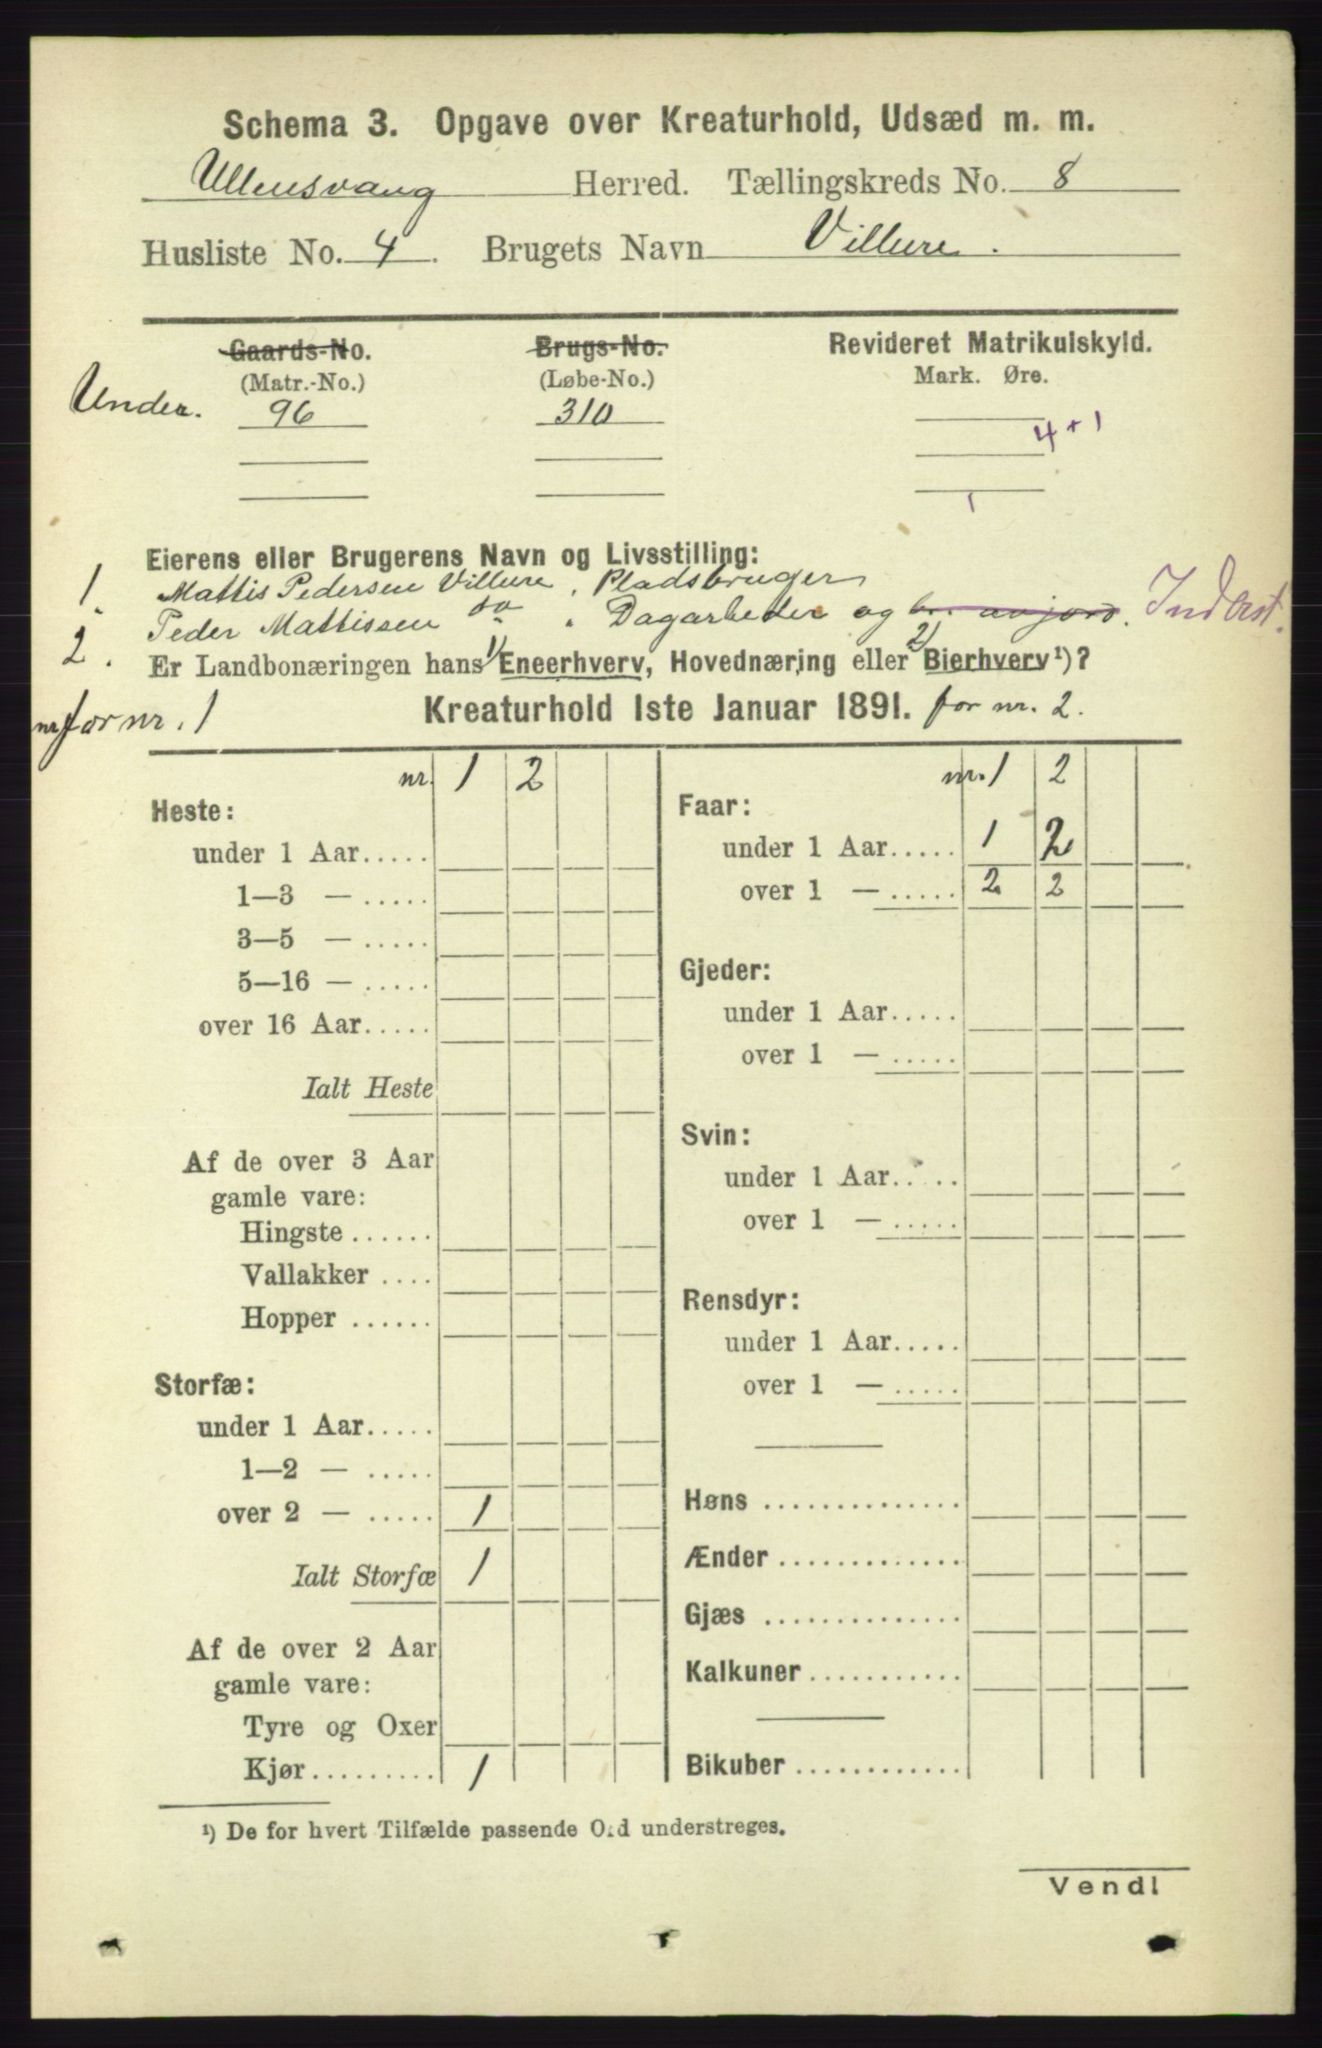 Schema 3. Opgave over Kreaturhold, Udsæd m. m.
Ullensvang Herred. Tællingskreds No. 8
Husliste No. 4. Brugets Navn Villure.
Gaards-No. Brugs-No. Revideret Matrikulskyld.
(Matr.-No.) (Løbe-No.) Mark. Øre.
Under. 96 310
4 + 1
1
Eierens eller Brugerens Navn og Livsstilling:
1. Mattis Pedersen Villure, Pladsbruger
2. Peder Mattissen do. Dagarbeider og Inderst.
Er Landbonæringen hans 1) Eneerhverv, Hovednæring eller 2) Bierhverv ¹)?
for nr. 1 Kreaturhold 1ste Januar 1891. for nr. 2.
nr. 1 2
Heste:
under 1 Aar.....
1—3 — .....
3—5 — .....
5—16 — .....
over 16 Aar.....
Ialt Heste
Af de over 3 Aar
gamle vare:
Hingste ......
Vallakker ....
Hopper ......
Storfæ:
under 1 Aar.....
1—2 — .....
over 2 — ..... 1
Ialt Storfæ 1
Af de over 2 Aar
gamle vare:
Tyre og Oxer
Kjør......... 1
nr. 1 2
Faar:
under 1 Aar..... 1 2
over 1 — ..... 2 2
Gjeder:
under 1 Aar.....
over 1 — .....
Svin:
under 1 Aar.....
over 1 — .....
Rensdyr:
under 1 Aar.....
over 1 — .....
Høns ..............
Ænder .............
Gjæs ..............
Kalkuner ...........
Bikuber ............
¹) De for hvert Tilfælde passende Ord understreges.
Vend!